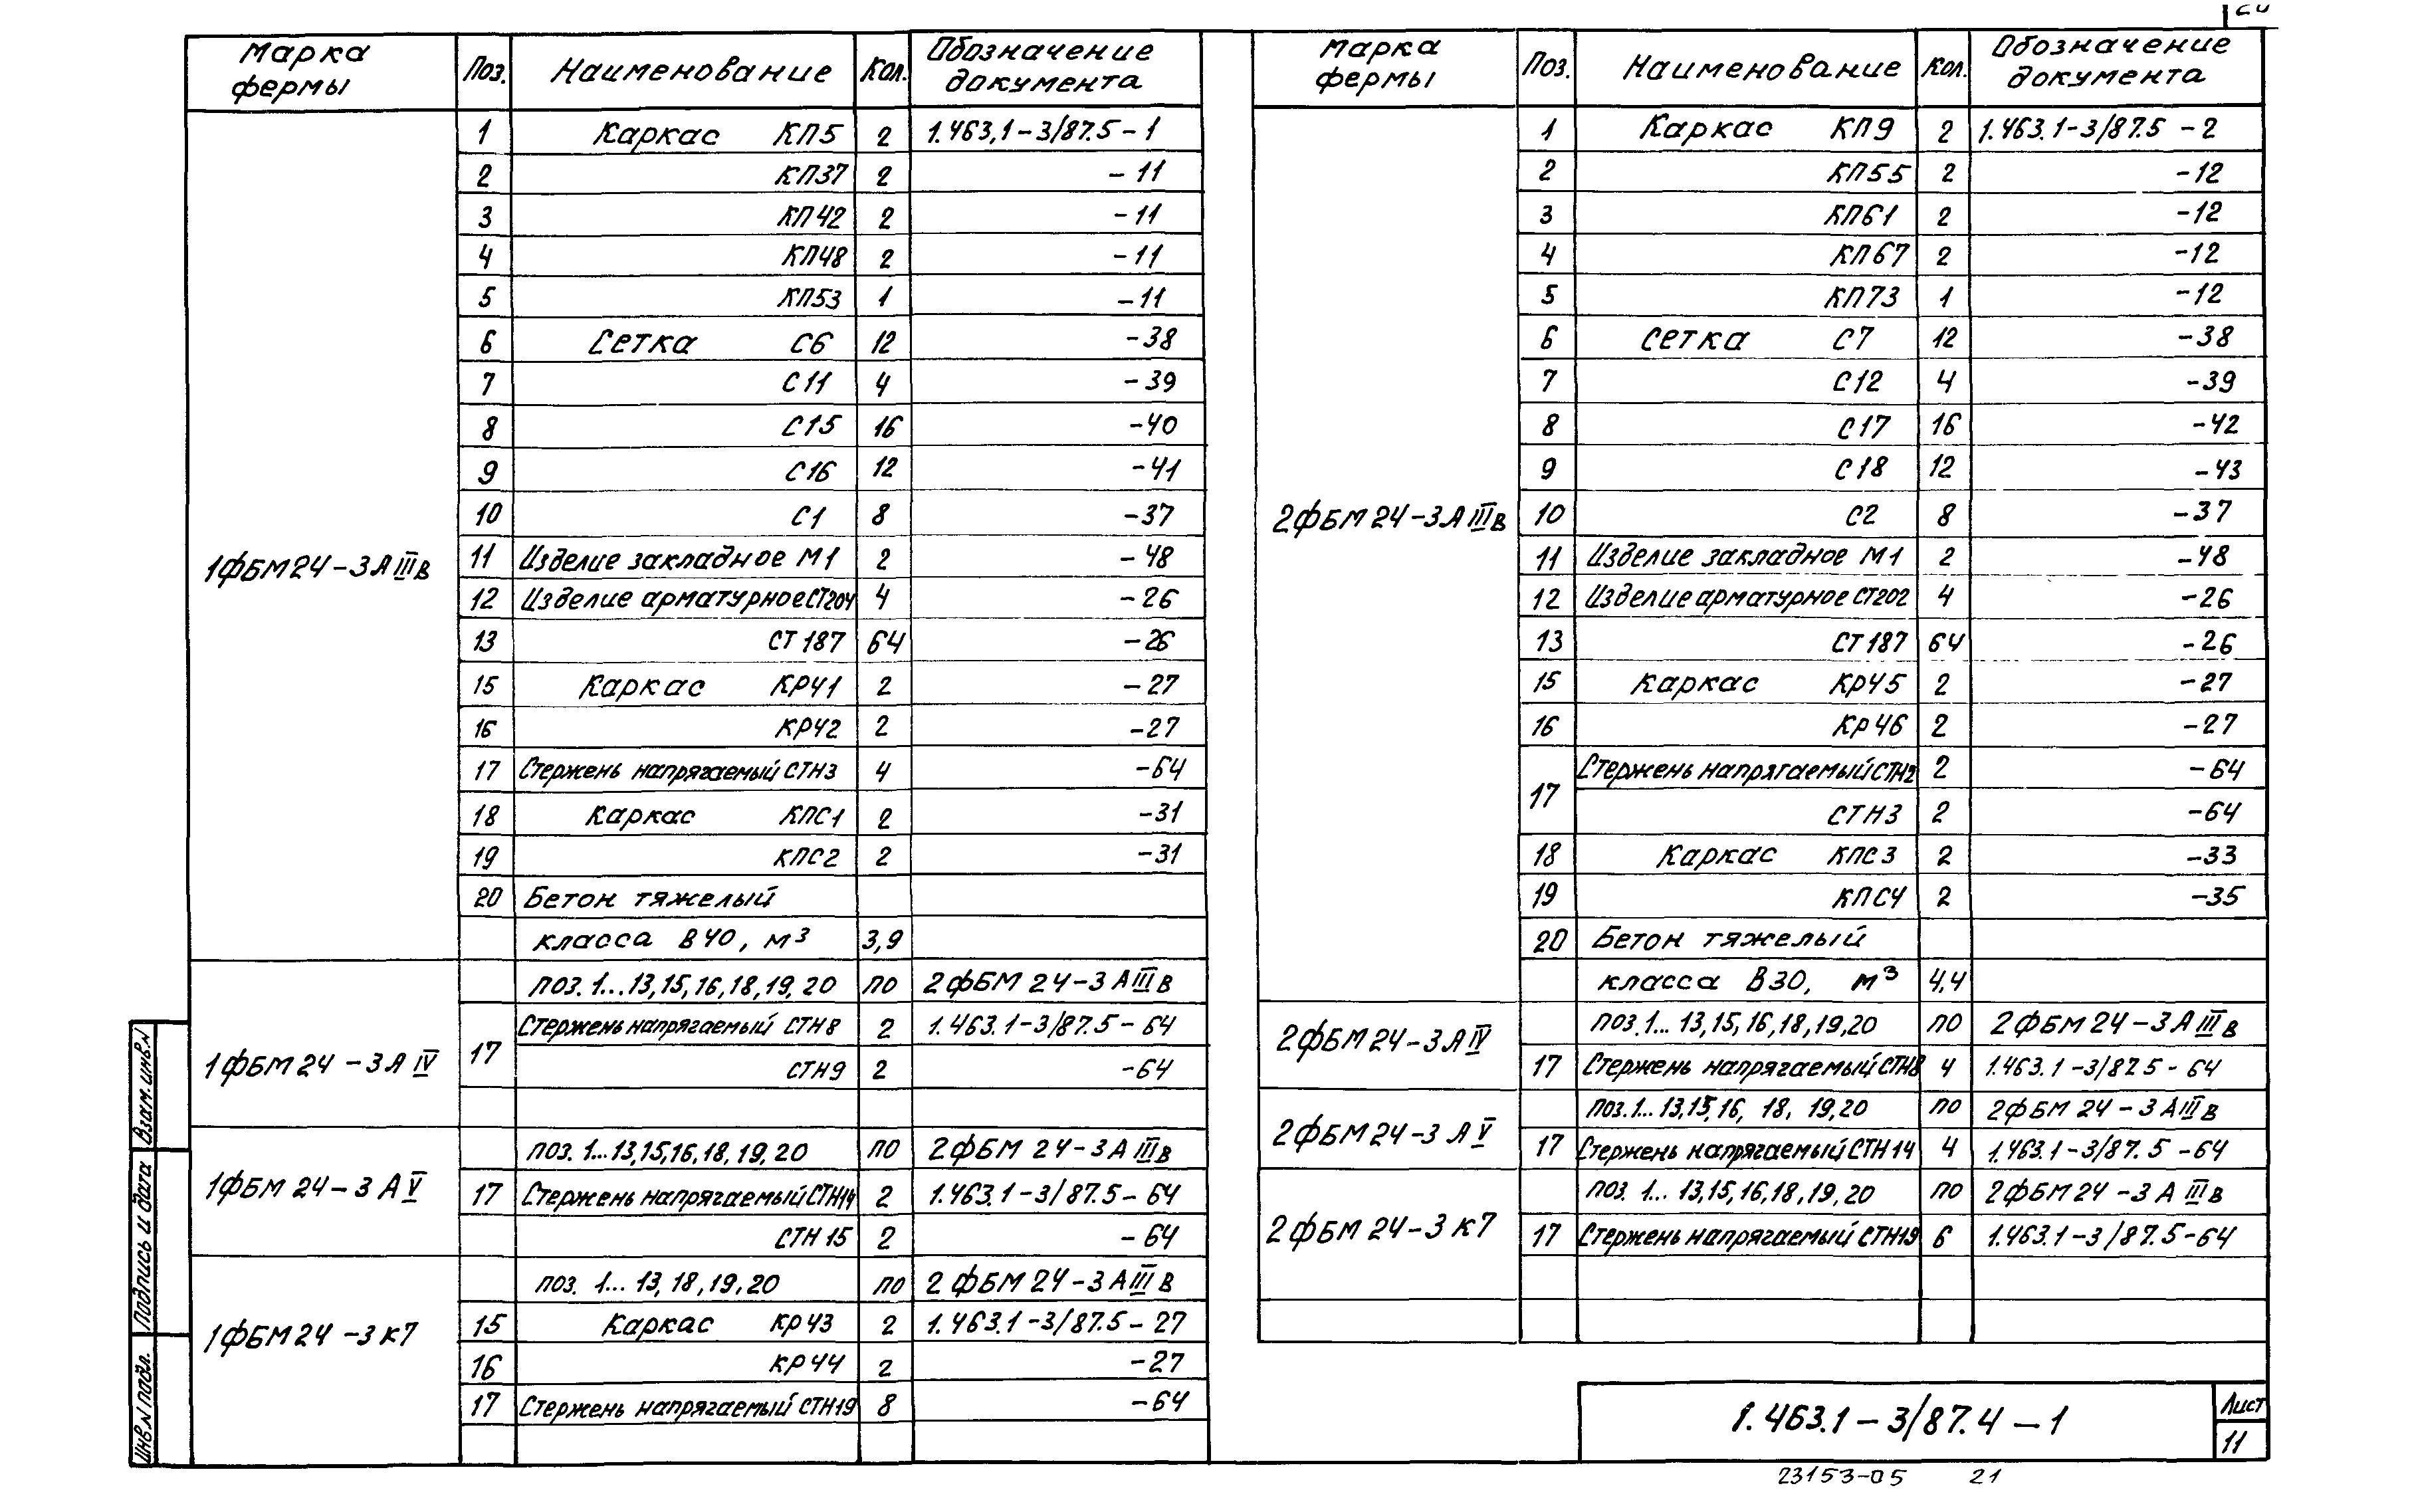 Марка фермы Поз. Наименование Кол. Обозначение документа
1ФБМ24-3АIIIв
1 Каркас КП5 2 1.463.1-3/87.5-1
2 КП37 2 -11
3 КП42 2 -11
4 КП48 2 -11
5 КП53 1 -11
6 Сетка С6 12 -38
7 С11 4 -39
8 С15 16 -40
9 С16 12 -41
10 С1 8 -37
11 Изделие закладное М1 2 -48
12 Изделие арматурное СТ204 4 -26
13 СТ187 64 -26
15 Каркас КР41 2 -27
16 КР42 2 -27
17 Стержень напрягаемый СТН3 4 -64
18 Каркас КПС1 2 -31
19 КПС2 2 -31
20 Бетон тяжелый
класса В40, м³ 3,9
1ФБМ24-3АIV
поз. 1...13,15,16,18,19,20 по 2ФБМ24-3АIIIв
17 Стержень напрягаемый СТН8 2 1.463.1-3/87.5-64
СТН9 2 -64
1ФБМ24-3АV
поз. 1...13,15,16,18,19,20 по 2ФБМ24-3АIIIв
17 Стержень напрягаемый СТН14 2 1.463.1-3/87.5-64
СТН15 2 -64
1ФБМ24-3К7
поз. 1...13,18,19,20 по 2ФБМ24-3АIIIв
15 Каркас КР43 2 1.463.1-3/87.5-27
16 КР44 2 -27
17 Стержень напрягаемый СТН19 8 -64
Марка фермы Поз. Наименование Кол. Обозначение документа
2ФБМ24-3АIIIв
1 Каркас КП9 2 1.463.1-3/87.5-2
2 КП55 2 -12
3 КП61 2 -12
4 КП67 2 -12
5 КП73 1 -12
6 Сетка С7 12 -38
7 С12 4 -39
8 С17 16 -42
9 С18 12 -43
10 С2 8 -37
11 Изделие закладное М1 2 -48
12 Изделие арматурное СТ202 4 -26
13 СТ187 64 -26
15 Каркас КР45 2 -27
16 КР46 2 -27
17 Стержень напрягаемый СТН2 2 -64
СТН3 2 -64
18 Каркас КПС3 2 -33
19 КПС4 2 -35
20 Бетон тяжелый
класса В30, м³ 4,4
2ФБМ24-3АIV
поз. 1...13,15,16,18,19,20 по 2ФБМ24-3АIIIв
17 Стержень напрягаемый СТН8 4 1.463.1-3/87.5-64
2ФБМ24-3АV
поз. 1...13,15,16,18,19,20 по 2ФБМ24-3АIIIв
17 Стержень напрягаемый СТН14 4 1.463.1-3/87.5-64
2ФБМ24-3К7
поз. 1...13,15,16,18,19,20 по 2ФБМ24-3АIIIв
17 Стержень напрягаемый СТН19 6 1.463.1-3/87.5-64
Взам. инв.N
Подпись и дата
Инв.N подл.
1.463.1-3/87.4-1
Лист
11
23153-05 21